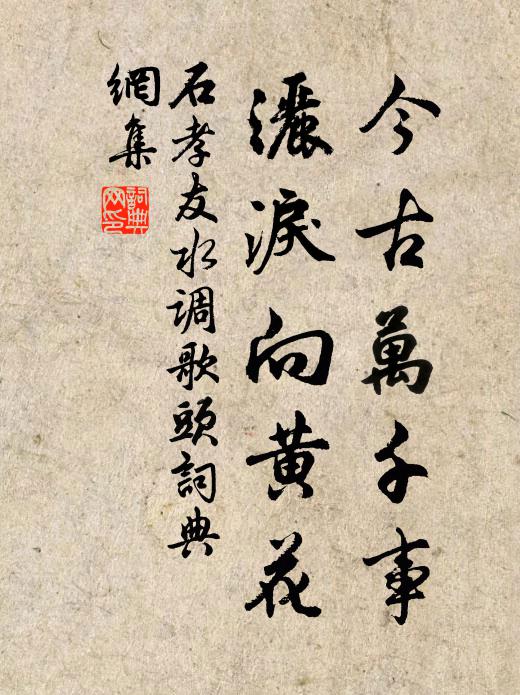 今古萬千事
灑淚向黃花
石孝友水调歌頭詞典
網集
詞典
网印